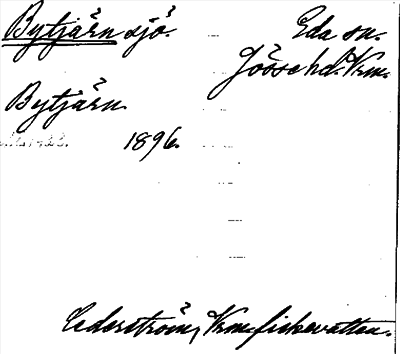 Bytjärn sjö. Eda sn.
Jösse hd. Vrm.
Bytjärn.
1896.
Cederström, Vrm fiskevatten.